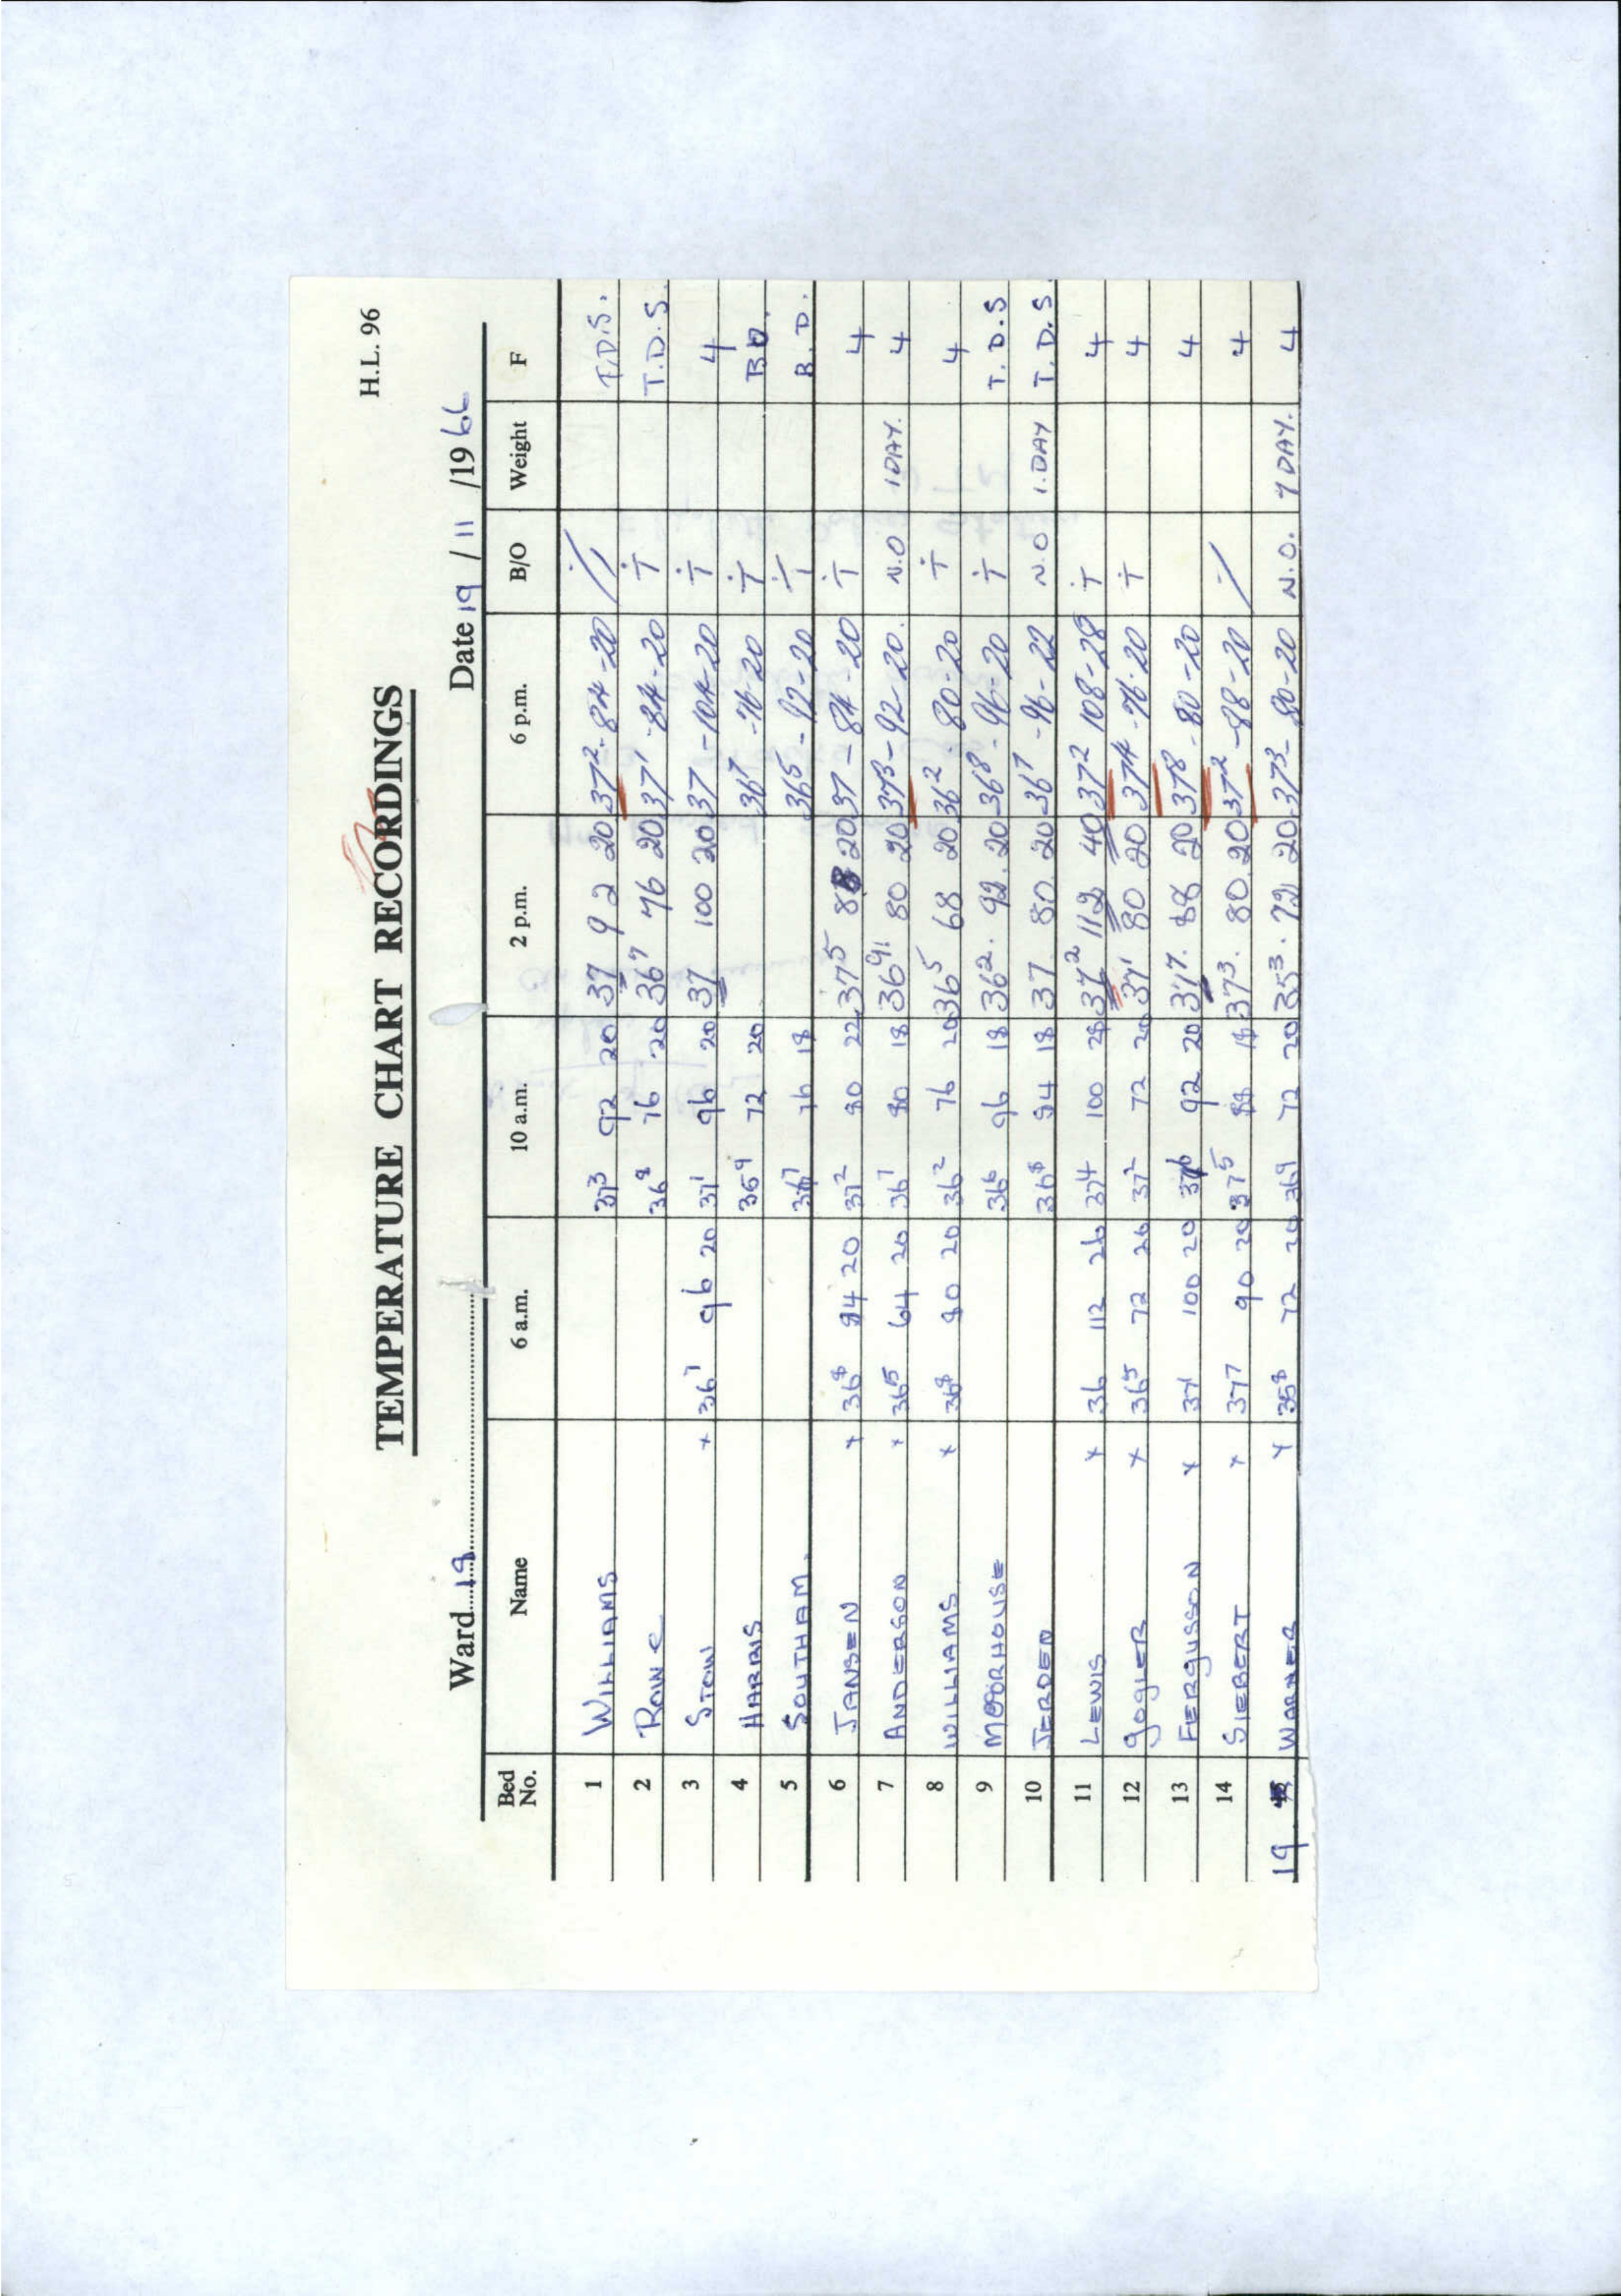 H.L. 96
TEMPERATURE CHART RECORDINGS
Ward 19 Date 19 / 11 /19 66
Bed No. Name 6 a.m. 10 a.m. 2 p.m. 6 p.m. B/O Weight F
1 WILLIAMS 37³ 92 20 37 92 20 37²-84-20 T.D.S.
2 36⁸ 76 20 36⁷ 76 20 37¹-84-20 Ṫ T.D.S.
3 STOW x 36⁷ 96 20 37¹ 96 20 37 100 20 37-104-20 Ṫ 4
4 HARRIS 35⁹ 72 20 36⁷-76-20 Ṫ B.D.
5 SOUTHAM. 36⁷ 76 18 36⁵-92-20 Ṫ B.D.
6 JANSEN x 36⁸ 84 20 37² 80 22 37⁵ 88 20 37-84-20 Ṫ 4
7 ANDERSON x 36⁵ 64 20 36⁷ 80 18 36⁹ 80 20 37³-92-20. N.O 1 DAY. 4
8 WILLIAMS. x 36⁸ 80 20 36² 76 20 36⁵ 68 20 36²-80-20 Ṫ 4
9 MOORHOUSE 36⁶ 96 18 36². 92. 20 36⁸-96-20 Ṫ T.D.S
10 JERDEN 36⁸ 84 18 37 80. 20 36⁷-96-22 N.O 1.DAY T.D.S.
11 LEWIS x 36 112 26 37⁴ 100 28 37² 112 40 37² 108-28 Ṫ 4
12 GOGLER x 36⁵ 72 20 37² 72 20 37¹ 80 20 37⁴-76-20 Ṫ 4
13 FERGUSSON x 37¹ 100 20 37⁶ 92 20 37⁷. 88 20 37⁸-80-20 4
14 SIEBERT x 37⁷ 90 20 37⁵ 88 18 37³. 80. 20 37²-88-20 / 4
19 WARNER x 35⁸ 72 20 36⁹ 72 20 35³. 72 20 37³-80-20 N.O. 7 DAY. 4